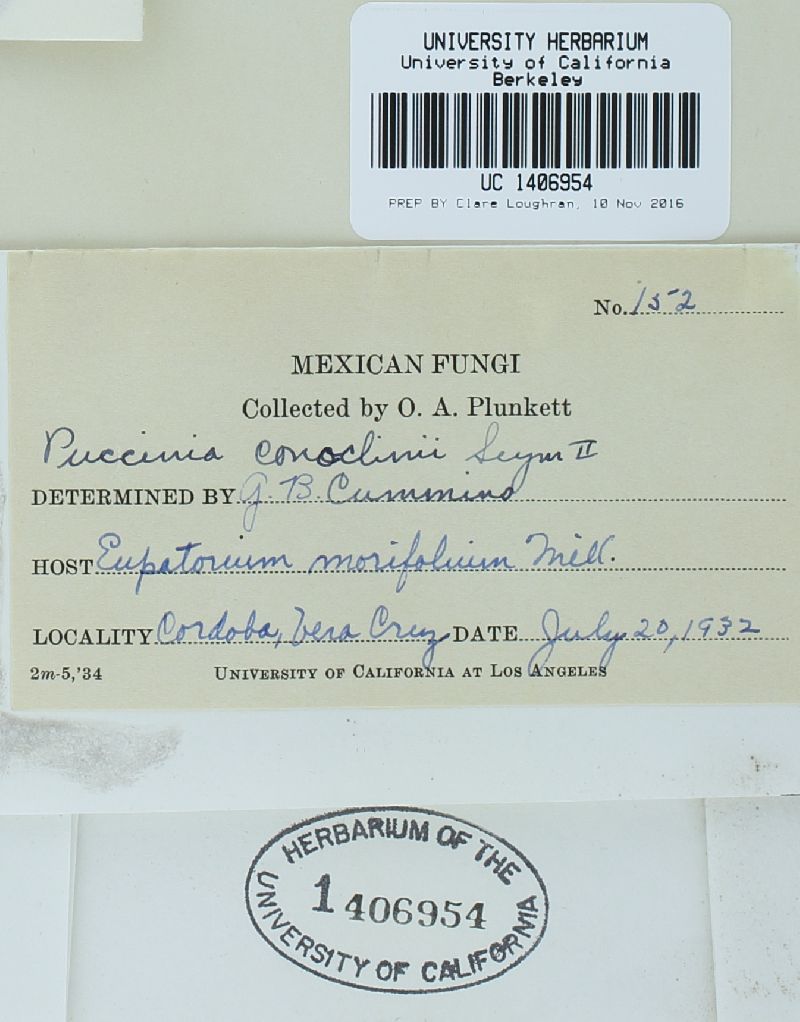 UNIVERSITY HERBARIUM
University of California
Berkeley
UC 1406954
PREP BY Clare Loughran, 10 Nov 2016
No. 152
MEXICAN FUNGI
Collected by O. A. Plunkett
Puccinia conoclinii Seym II
DETERMINED BY G. B. Cummins
HOST Eupatorium morifolium Mill.
LOCALITY Cordoba, Vera Cruz DATE July 20, 1932
2m-5,'34 UNIVERSITY OF CALIFORNIA AT LOS ANGELES
HERBARIUM OF THE
1406954
UNIVERSITY OF CALIFORNIA